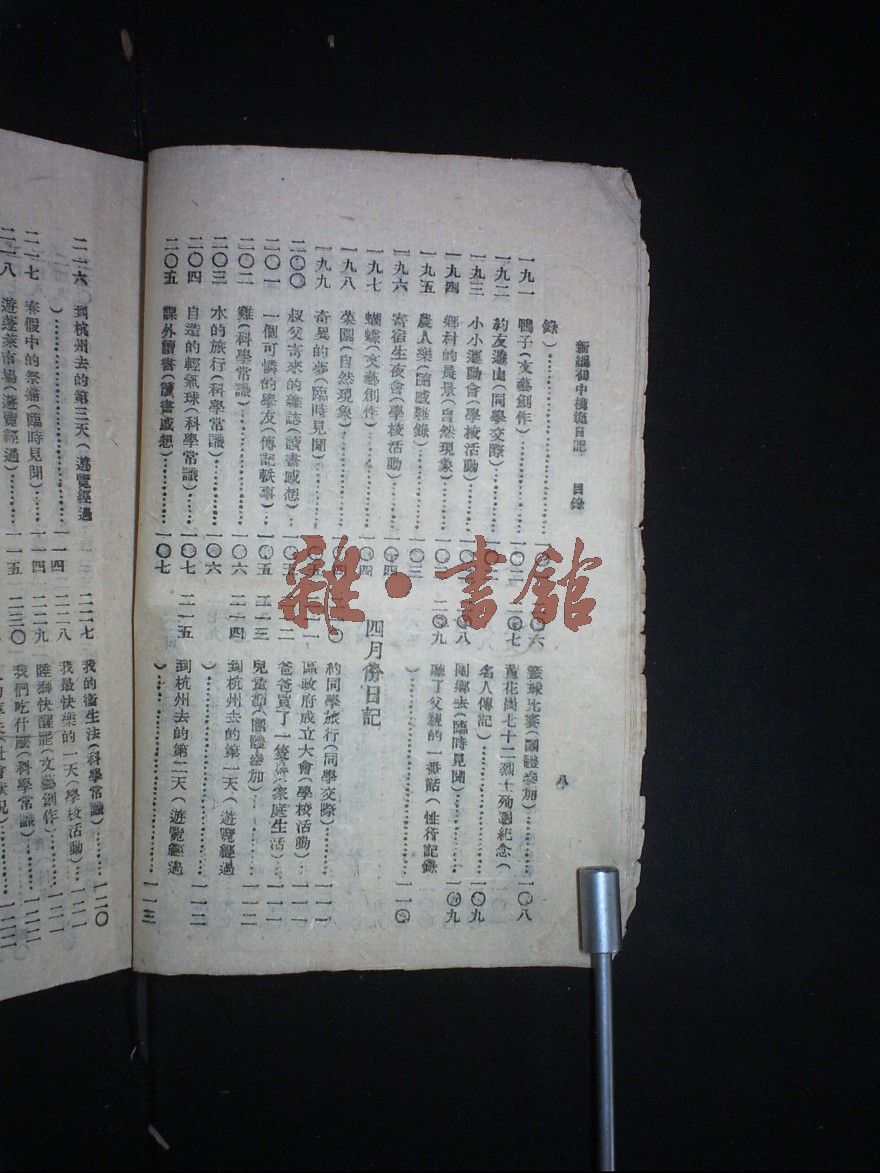 新編初中模範日記 目錄
八
錄）……一〇
一九一 鴨子（文藝創作）……一〇二
一九二 約友遊山（同學交際）
一九三 小小運動會（學校活動）
一九四 鄉村的晨景（自然現象）
一九五 農人樂（隨感雜錄）……一〇三
一九六 寄宿生夜會（學校活動）
一九七 蝴蝶（文藝創作）
一九八 菜園（自然現象）
一九九 奇異的夢（臨時見聞）
二〇〇 叔父寄來的雜誌（讀書感想）
二〇一 一個可憐的學友（傳記軼事）……一〇五
二〇二 雞（科學常識）……一〇六
二〇三 水的旅行（科學常識）……一〇六
二〇四 自造的輕氣球（科學常識）……一〇七
二〇五 課外讀書（讀書感想）……一〇七
二〇六 籃球比賽（團體參加）……一〇八
二〇七 黃花崗七十二烈士殉國紀念（
名人傳記）……一〇九
二〇八 閙鄉去（臨時見聞）……一〇九
二〇九 聽了父親的一番話（性行記錄
）……一一〇
四月份日記
約同學旅行（同學交際）……一一一
區政府成立大會（學校活動）……一一一
爸爸買了一隻（家庭生活）……一一一
二一三 兒童節（團體參加）……一一二
二一四 到杭州去的第一天（遊覽經過
）……一一二
二一五 到杭州去的第二天（遊覽經過
）……一一三
二一六 到杭州去的第三天（遊覽經過
）……一一四
二一七 春假中的祭掃（臨時見聞）……一一四
二一八 遊蓬萊市場（遊覽經過）……一一五
二二七 我的衛生法（科學常識）……一二〇
二二八 我最快樂的一天（學校活動）……一二一
二二九 睡獅快醒罷（文藝創作）……一二一
二三〇 我們吃什麼（科學常識）……一二二
雜·書館